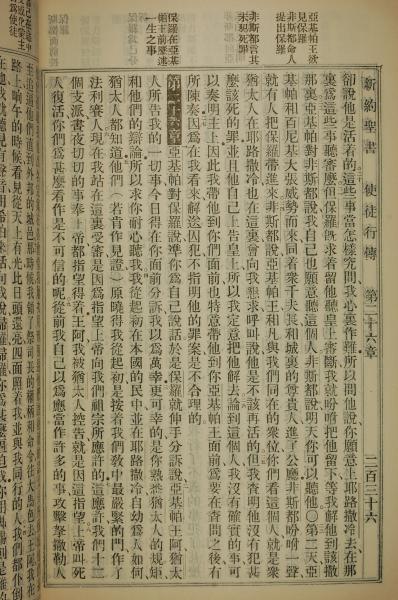 新約聖書 使徒行傳 第二十六章 二百三十六
亞基帕王欲
見保羅
非斯都命人
提出保羅
非斯都言其
未犯死罪
保羅在亞基
帕王前歷述
一生之事
卻說他是活着的這些事當怎樣究問我心裏作難所以問他說你願意上耶路撒冷去在那
裏爲這些事聽審麼但保羅旣求着留他聽皇上審斷我就吩咐把他留下等我解他到該撒
那裏亞基帕對非斯都說我自己也願意聽這個人非斯都說明天你可以聽他〇第二天亞
基帕和百尼基大張威勢而來同着衆千夫長和城裏的尊貴人進了公廳非斯都吩咐一聲
就有人把保羅帶進來非斯都說亞基帕王和凡與我們同在的衆位你們看這個人就是衆
猶太人在耶路撒冷也在這裏曾向我懇求呼叫說他是不該再活的但我查明他沒有犯甚
麼該死的罪並且他自己上告皇上所以我定意把他解去論到這個人我沒有確實的事可
以奏明主上因此我帶他到你們面前也特意帶他到你亞基帕王面前爲要在查問之後有
所陳奏因爲在我看來解送囚犯不指明他的罪案是不合理的
第二十六章 亞基帕對保羅說准你爲自己說話於是保羅就伸手分訴說亞基帕王阿猶太
人所告我的一切事今日得在你面前分訴我以爲萬幸更可幸的是你熟悉猶太人的規矩
和他們的辯論所以求你耐心聽我我從起初在本國的民中並在耶路撒冷自幼爲人如何
猶太人都知道他們(若肯作見證)原曉得我從起初是按着我們教中最嚴緊的門作了
法利賽人現在我站在這裏受審是因爲指望上帝向我們祖宗所應許的這應許我們十二
個支派晝夜切切的事奉上帝都指望得着王阿我被猶太人控告就是因這指望上帝叫死
人復活你們爲甚麼看作是不可信的呢從前我自己以爲應當作許多的事攻擊拏撒勒人